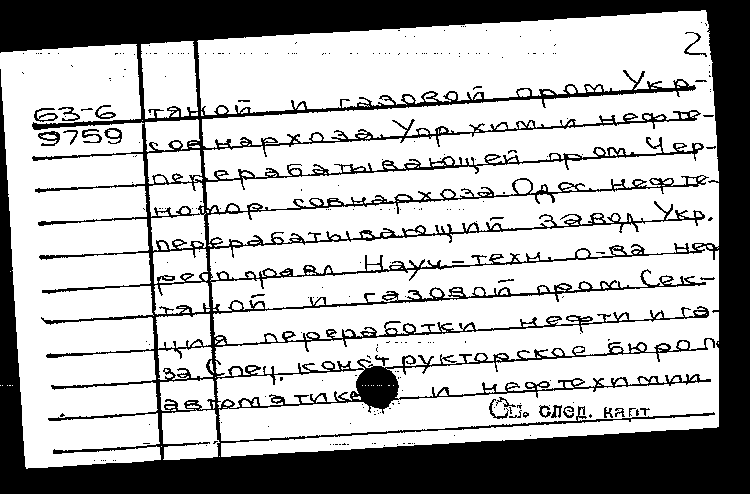 2
63-6 тяной и газовой пром. Укр-
9759 совнархоза. Упр. хим. и нефте-
перерабатывающей пром. Чер-
номор. совнархоза. Одес. нефте-
перерабатывающий завод. Укр.
респ правл Науч-техн. о-ва неф
тяной и газовой пром. Сек-
ция переработки нефти и га-
за. Спец. конструкторское бюро п
автоматике и нефтехимии
См. след. карт